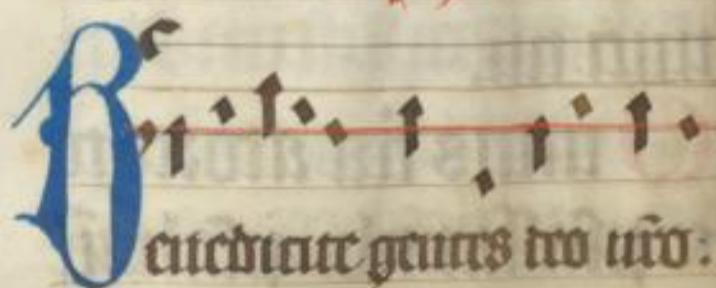 Benedicite gentes deo nr̄o: